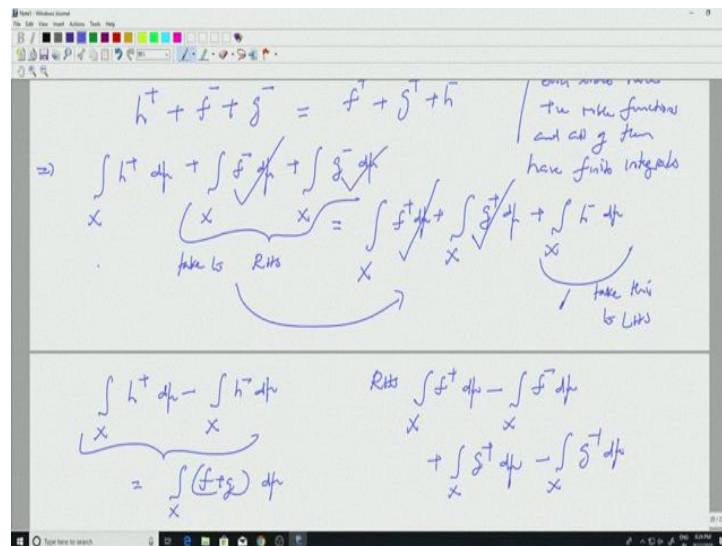 Note1 - Windows Journal
File Edit View Insert Actions Tools Help
h⁺ + f⁻ + g⁻ = f⁺ + g⁺ + h⁻
functions
and all of them
have finite integrals
⇒ ∫_X h⁺ dμ + ∫_X f⁻ dμ + ∫_X g⁻ dμ
= ∫_X f⁺ dμ + ∫_X g⁺ dμ + ∫_X h⁻ dμ
take to RHS
take this
to LHS
∫_X h⁺ dμ - ∫_X h⁻ dμ
= ∫_X (f+g) dμ
RHS ∫_X f⁺ dμ - ∫_X f⁻ dμ
+ ∫_X g⁺ dμ - ∫_X g⁻ dμ
Type here to search